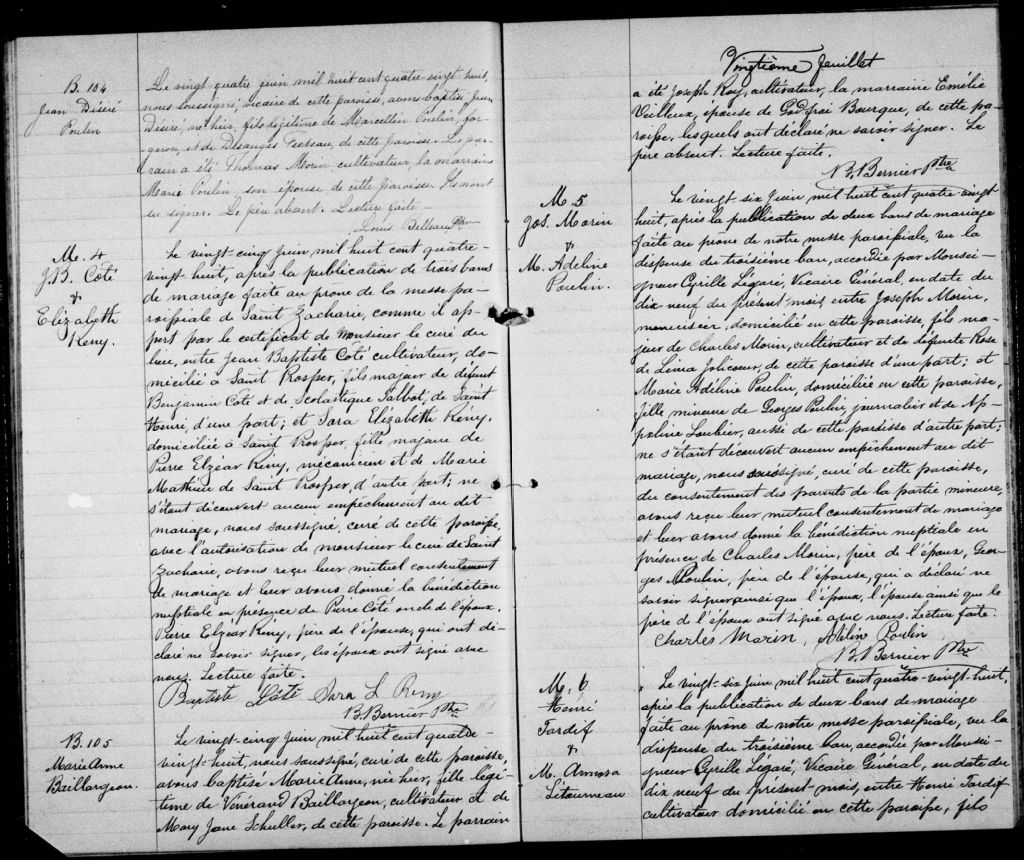 B. 104
Jean Désiré
Poulin
Le vingt-quatre juin mil huit cent quatre-vingt-huit,
nous soussigné, vicaire de cette paroisse, avons baptisé Jean
Désiré, né hier, fils légitime de Marcellin Poulin, for-
geron, et de Désanges Fecteau, de cette paroisse. Le par-
rain a été Thomas Morin cultivateur, la marraine
Marie Poulin son épouse de cette paroisse
su signer. Le père absent. Lecture faite
Louis Belleau Ptre
M. 4
J.B. Coté
&
Elizabeth
Rémy.
Le vingt-cinq juin mil huit cent quatre-
vingt-huit, après la publication de trois bans
de mariage faite au prône de la messe pa-
roissiale de Saint Zacharie, comme il ap-
pert par le certificat de monsieur le curé du
lieu, entre Jean Baptiste Coté cultivateur, do-
micilié à Saint Prosper, fils majeur de défunt
Benjamin Coté et de Scolastique Talbot, de Saint
Henri, d'une part; et Sara Elizabeth Rémy,
domiciliée à Saint Prosper, fille majeure de
Pierre Elzéar Rémy, mécanicien et de Marie
Mathieu de Saint Prosper, d'autre part; ne
s'étant découvert aucun empêchement au dit
mariage, nous soussigné, curé de cette paroisse,
avec l'autorisation de monsieur le curé de Saint
Zacharie, avons reçu leur mutuel consentement
de mariage et leur avons donné la bénédiction
nuptiale en présence de Pierre Coté oncle de l'époux,
Pierre Elzéar Rémy, père de l'épouse, qui ont dé-
claré ne savoir signer, les époux ont signé avec
nous. Lecture faite.
Baptiste Coté Sara L Remy
B. Bernier Ptre
B. 105
Marie Anne
Baillargeon.
Le vingt-cinq juin mil huit cent quatre-
vingt-huit, nous soussigné, curé de cette paroisse,
avons baptisé Marie Anne, née hier, fille légi-
time de Vénérand Baillargeon, cultivateur et de
Mary Jane Schuller, de cette paroisse. Le parrain
Vingtième feuillet
a été Joseph Roy, cultivateur, la marraine Emélie
Veilleux, épouse de Godfroi Bourque, de cette pa-
roisse, lesquels ont déclaré ne savoir signer. Le
père absent. Lecture faite.
B. Bernier Ptre
M 5
Jos. Morin
&
M. Adéline
Poulin.
Le vingt six juin mil huit cent quatre-vingt
huit, après la publication de deux bans de mariage
faite au prône de notre messe paroissiale, vu la
dispense du troisième ban, accordée par Monsei-
gneur Cyrille Légaré, Vicaire Général, en date du
dix-neuf du présent mois, entre Joseph Morin,
menuisier, domicilié en cette paroisse, fils ma-
jeur de Charles Morin, cultivateur et de défunte Rose
de Lima Jolicoeur, de cette paroisse d'une part; et
Marie Adéline Poulin, domiciliée en cette paroisse,
fille mineure de Georges Poulin journalier et de Ap-
poline Loubier, aussi de cette paroisse d'autre part;
ne s'étant découvert aucun empêchement au dit
mariage, nous soussigné, curé de cette paroisse,
du consentement des parents de la partie mineure,
avons reçu leur mutuel consentement de mariage
et leur avons donné la bénédiction nuptiale en
présence de Charles Morin, père de l'époux, Geor-
ges Poulin, père de l'épouse, qui a déclaré ne
savoir signer ainsi que l'époux, l'épouse ainsi que le
père de l'époux ont signé avec nous. Lecture faite.
Charles Marin, Adélin Poulin
B. Bernier Ptre
M. 6
Henri
Tardif
&
M. Armosa
Létourneau
Le vingt-six juin, mil huit cent quatre-vingt-huit,
après la publication de deux bans de mariage
faite au prône de notre messe paroissiale, vu la
dispense du troisième ban, accordée par Monsei-
gneur Cyrille Légaré, Vicaire Général, en date du
dix neuf du présent-mois, entre Henri Tardif
cultivateur domicilié en cette paroisse, fils